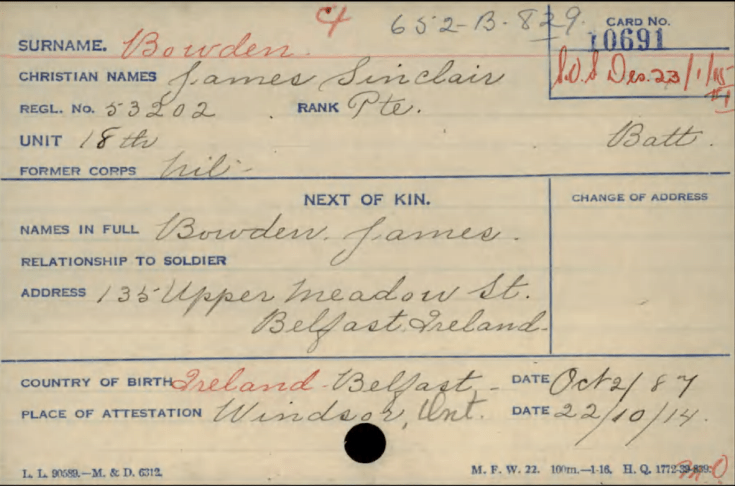 4 652-B-829. CARD NO.
10691
SURNAME. Bowden.
CHRISTIAN NAMES James Sinclair S.O.S Des. 23/1/15
REGL. No. 53202 RANK Pte.
UNIT 18th Batt.
FORMER CORPS nil-
NEXT OF KIN. CHANGE OF ADDRESS
NAMES IN FULL Bowden. James.
RELATIONSHIP TO SOLDIER
ADDRESS 135 Upper Meadow St.
Belfast Ireland-
COUNTRY OF BIRTH Ireland-Belfast- DATE Oct 2/87
PLACE OF ATTESTATION Windsor, Ont. DATE 22/10/14.
L. L. 90589.—M. & D. 6312. M. F. W. 22. 100m.—1-16. H. Q. 1772-39-839.